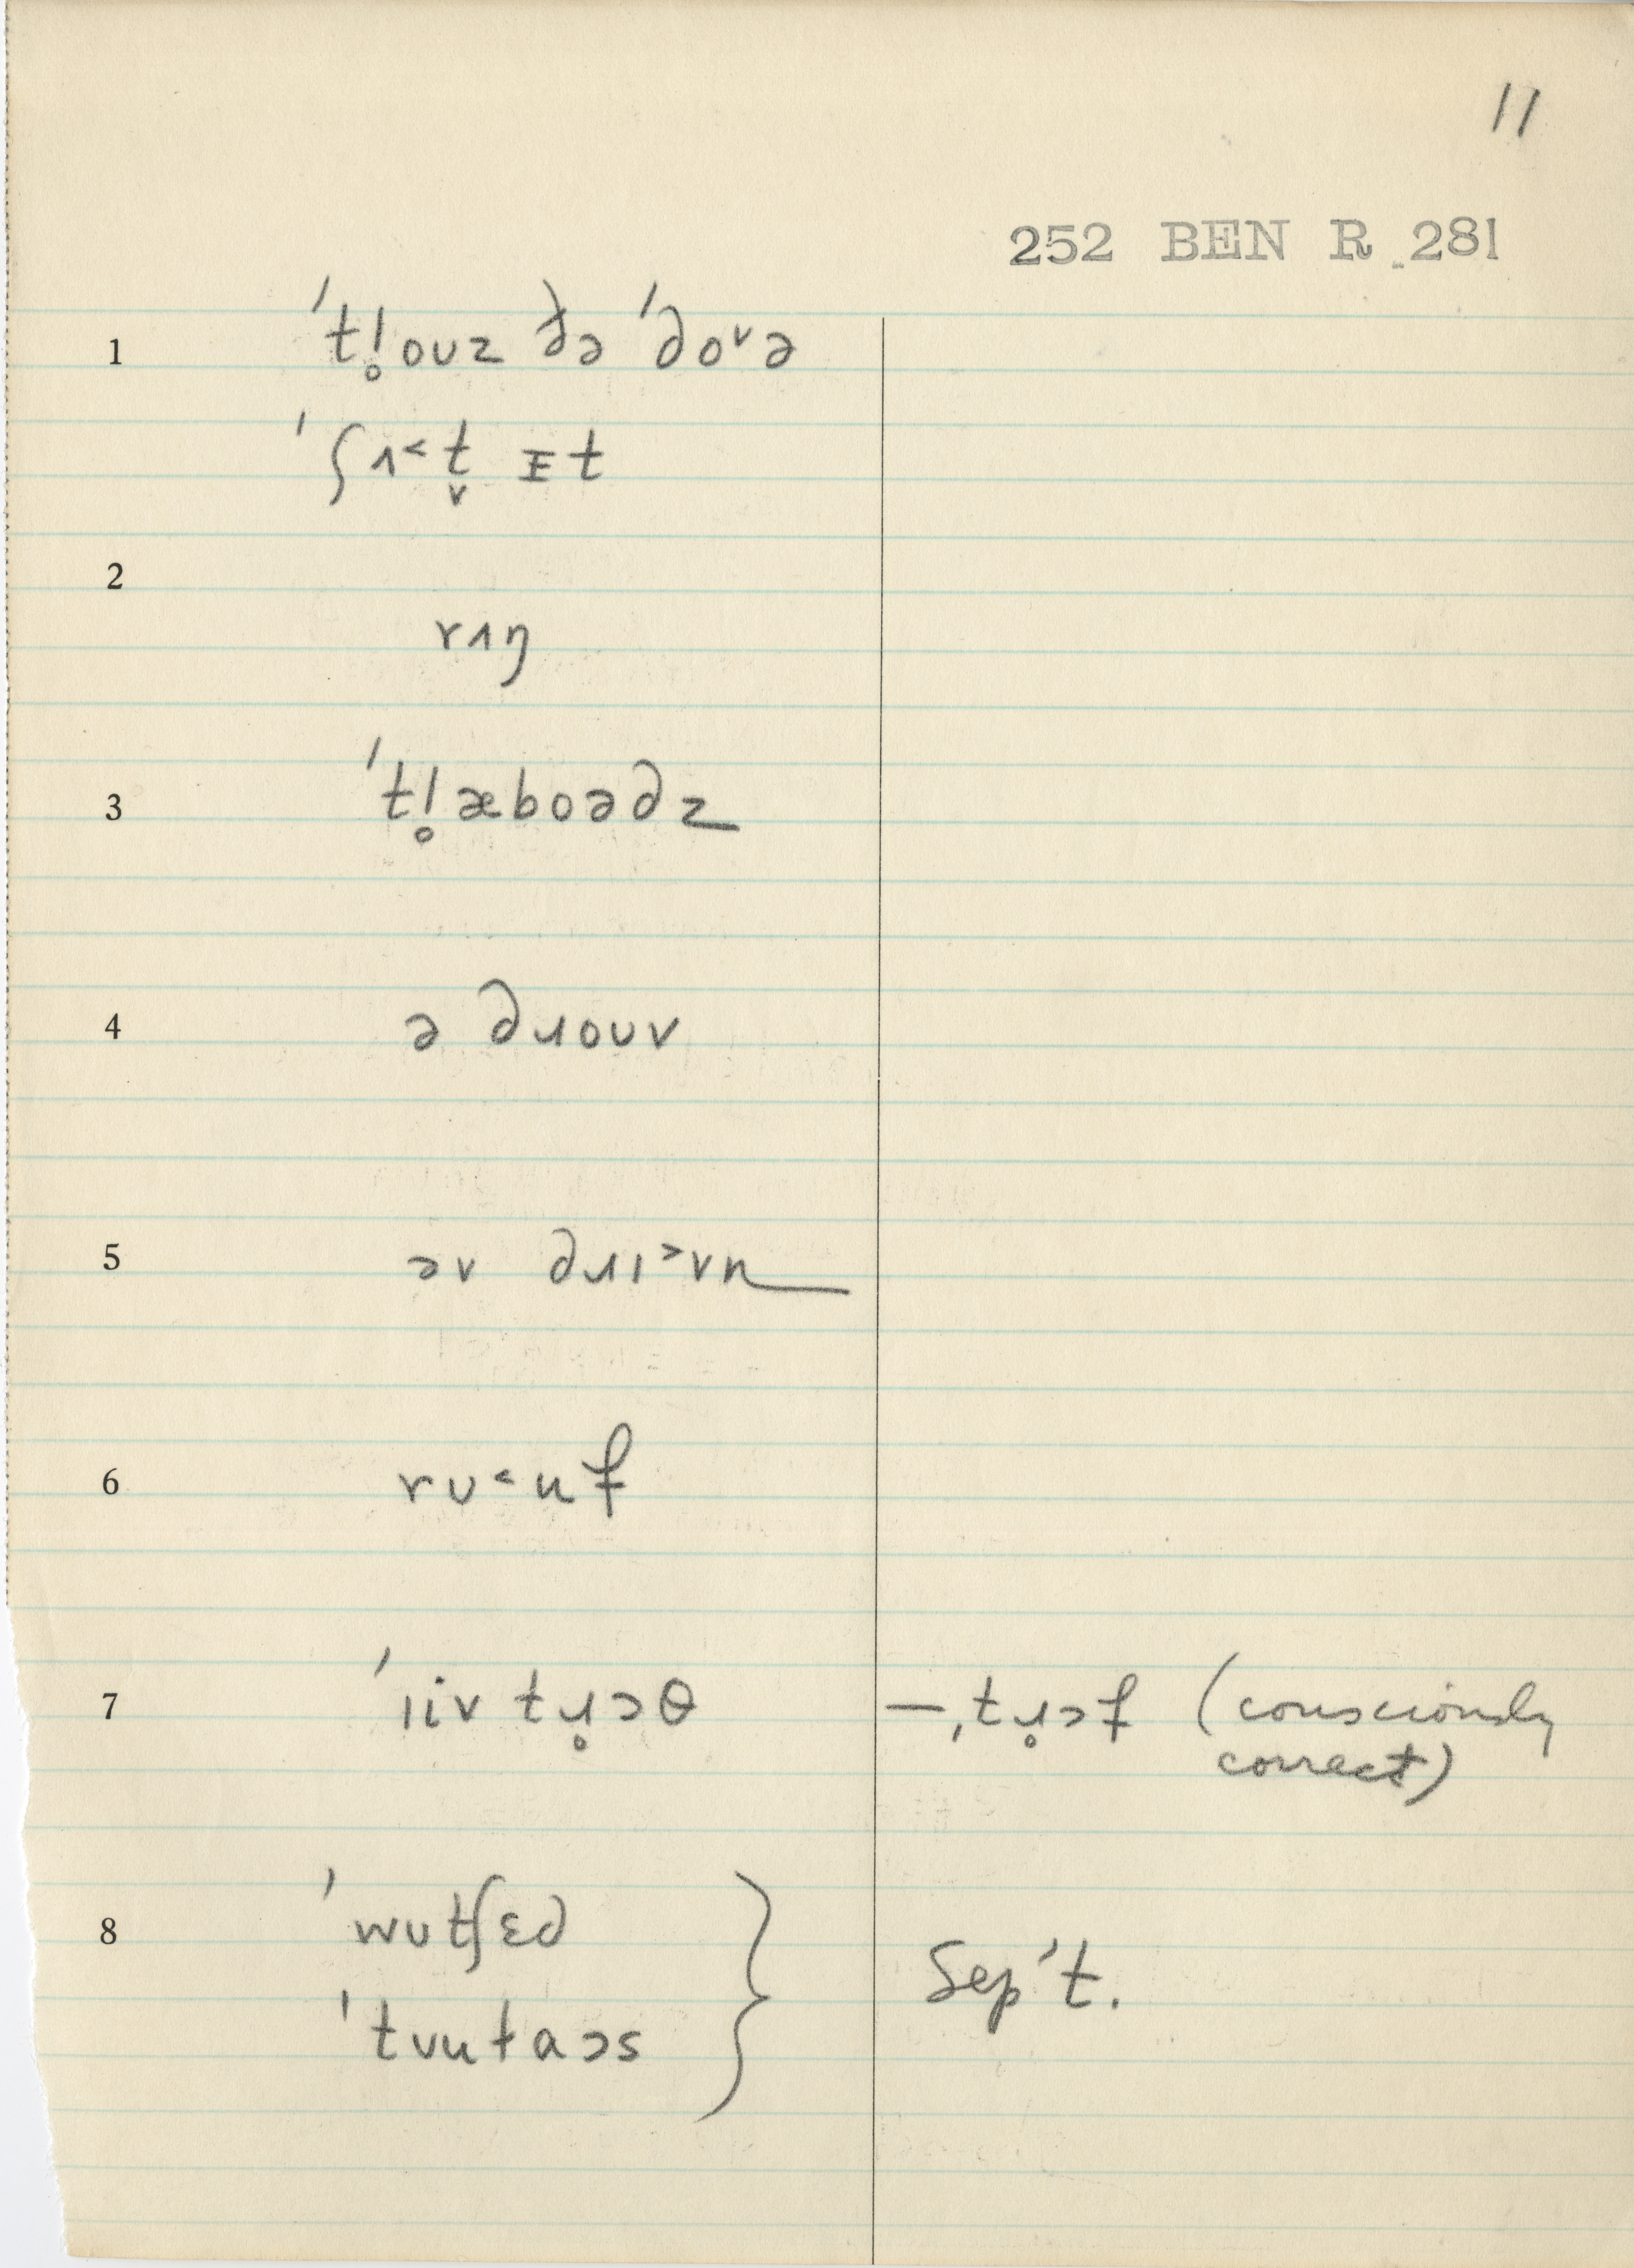 11
252 BEN R 281
1 ˈtl̥ouz ðə ˈdoᵛə
ˈʃɪ˂t̬ ɪt
2
rɪŋ
3 ˈtl̥æboədz
4 ə dɹouv
5 əv dɹɪ˃vn
6 rʊ˂uf
7 ˈliv tɹ̥ɔθ —ˌtɹ̥ɔf (consciously
correct)
8 ˈwutʃɛd
ˈtvutaɔs } Sep't.